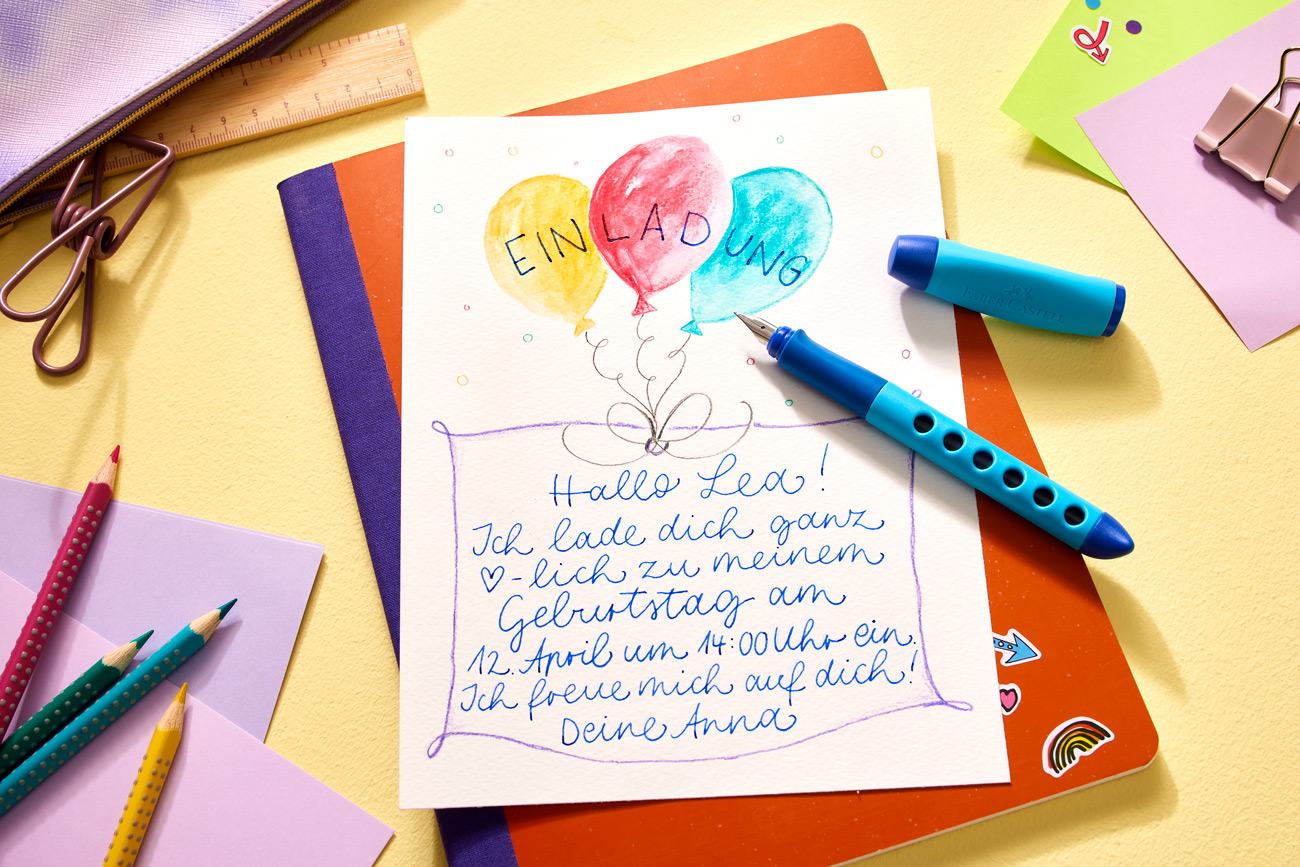 EINLADUNG
FABER-CASTELL
Hallo Lea!
Ich lade dich ganz
♡-lich zu meinem
Geburtstag am
12. April um 14:00 Uhr ein.
Ich freue mich auf dich!
Deine Anna